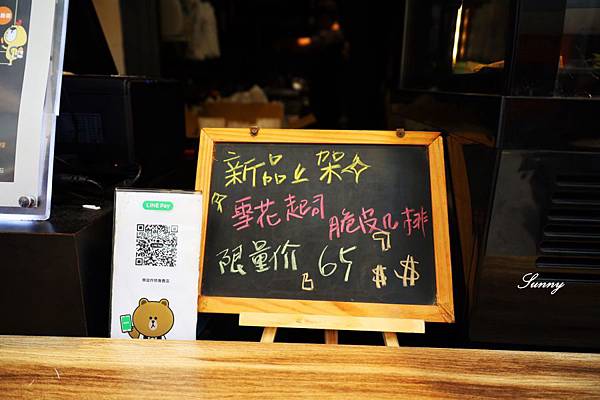 新品上架
雪花起司
脆皮几排
限量价 65
$ $
LINE Pay
Sunny